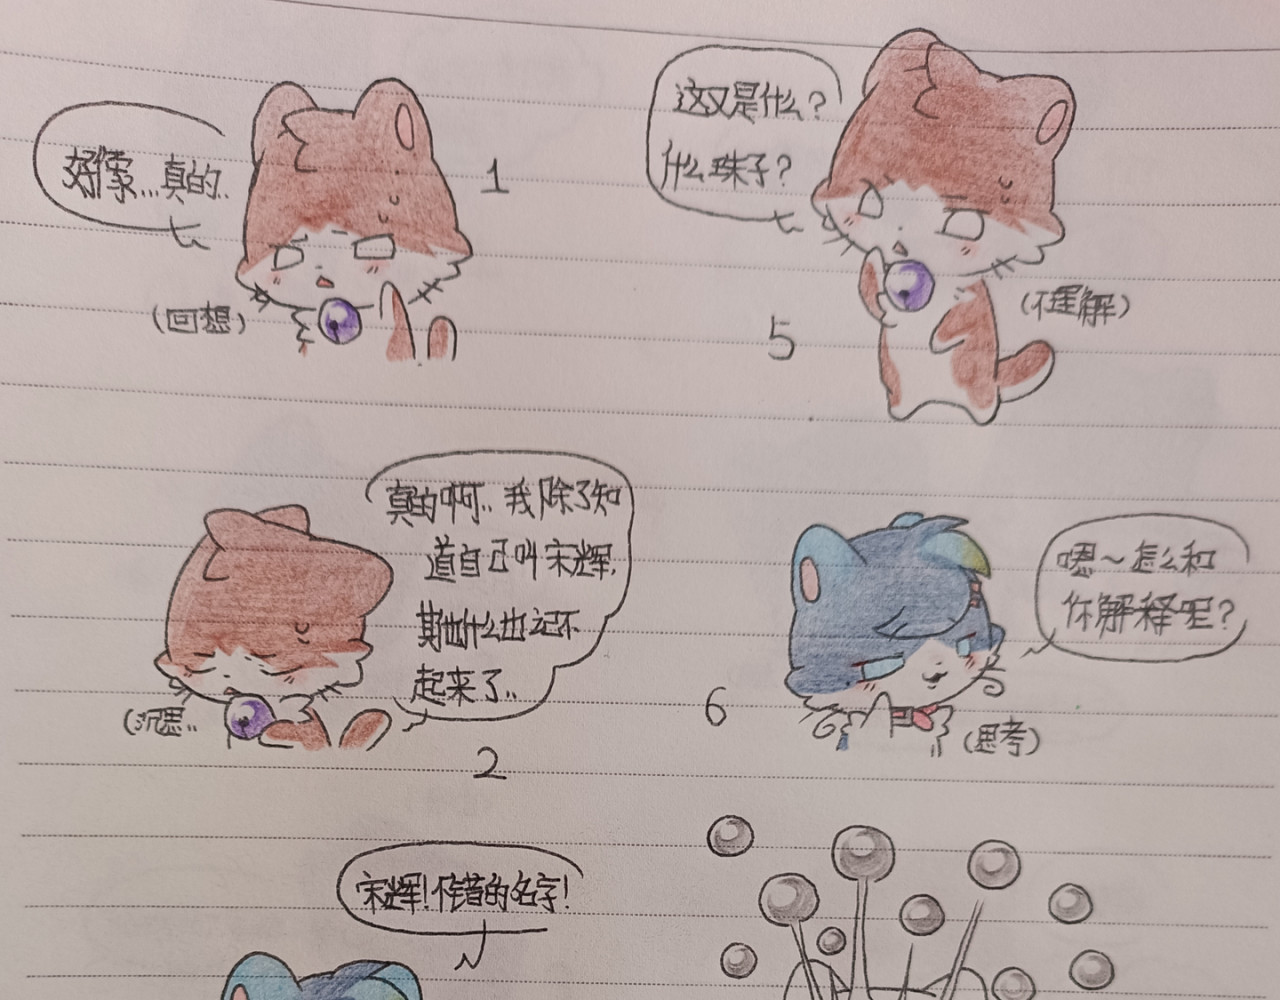 好像...真的..
1
(回想)
真的啊.. 我除了知
道自己叫宋辉,
其他什么也记不
起来了..
(沉思..
2
宋辉!不错的名字!
这又是什么?
什么珠子?
5
(不理解)
嗯~怎么和
你解释呢?
6
(思考)